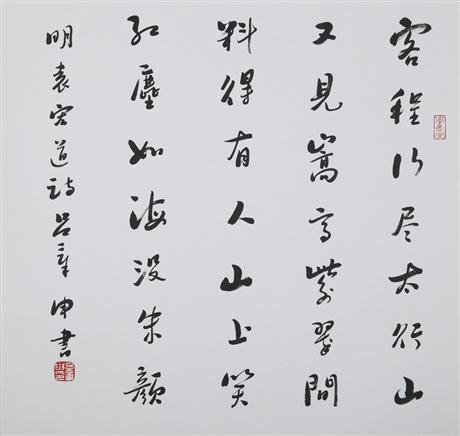 客程行尽太行山
又見嵩高紫翠間
料得有人山上笑
紅塵如海没朱顏
明袁宏道詩吕章申書